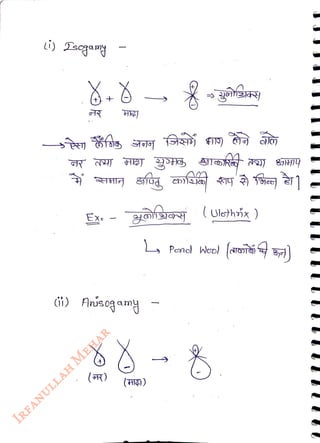 (i) Isogamy -
+ + - → ⇒ यूलोथ्रिक्स
नर मादा
→ ऐसा लैंगिक जनन जिसमें भाग लेने वाले
नर तथा मादा युग्मक आकारिकी तथा आकार
में समान परन्तु कार्यिकी रूप से भिन्न हो।
Ex. - यूलोथ्रिक्स (Ulothrix)
↳ Pond Wool (तालाबों की ऊन)
(ii) Anisogamy -
+ - → + -
(नर) (मादा)
IRFANULLAH MEHAR